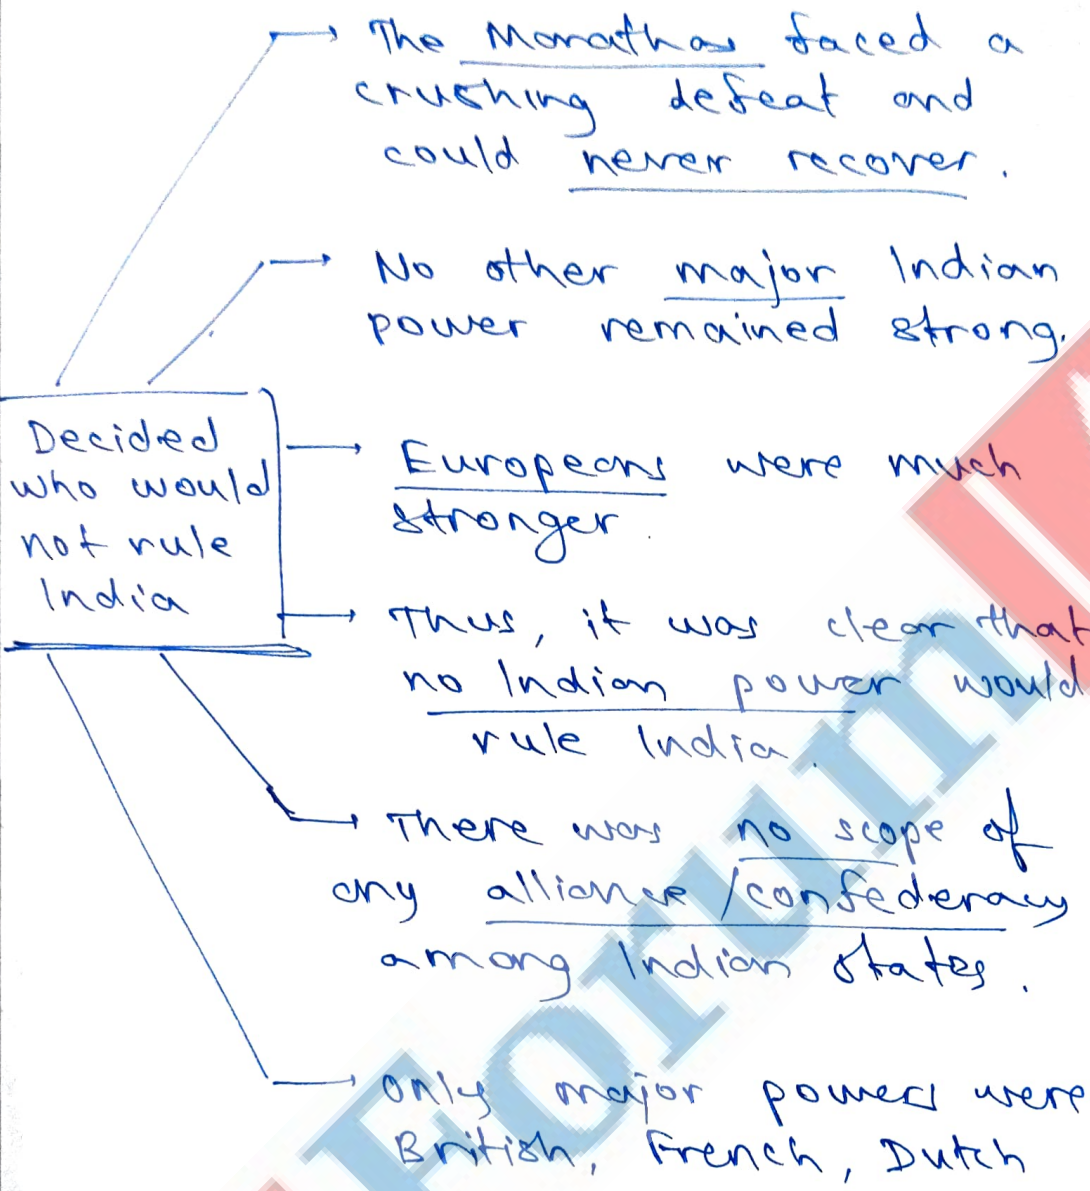 The Marathas faced a
crushing defeat and
could never recover.
No other major Indian
power remained strong.
Decided
who would
not rule
India
Europeans were much
stronger.
Thus, it was clear that
no Indian power would
rule India.
There was no scope of
any alliance/confederacy
among Indian states.
Only major powers were
British, French, Dutch
Forum